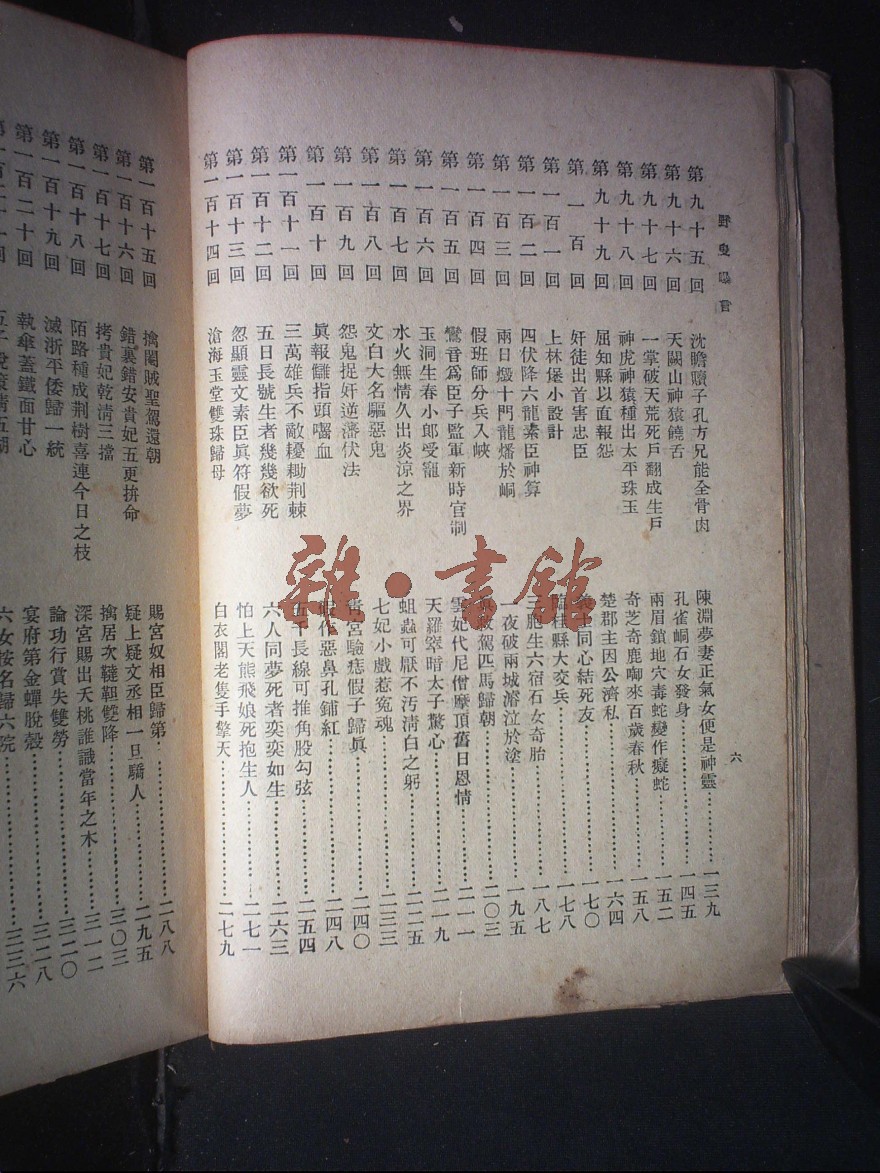 野叟曝言
六
第九十五回 沈瞻贖子孔方兄能全骨肉 陳淵夢妻正氣女便是神靈 一三九
第九十六回 天闕山神猿饒舌 孔雀峒石女發身 一四五
第九十七回 一掌破天荒死戶翻成生戶 兩眉鎖地穴毒蛇變作癡蛇 一五二
第九十八回 神虎神猿種出太平珠玉 奇芝奇鹿啣來百歲春秋 一五八
第九十九回 屈知縣以直報怨 楚郡主因公濟私 一六四
第一百回 奸徒出首害忠臣 同心結死友 一七〇
第一百一回 上林堡小設計 臨桂縣大交兵 一七八
第一百二回 四伏降六龍素臣神算 三胞生六宿石女奇胎 一八七
第一百三回 兩日燬十門龍燔於峒 一夜破兩城溶泣於塗 一九五
第一百四回 假班師分兵入峽 駕匹馬歸朝 二〇三
第一百五回 鸞音爲臣子監軍新時官制 雲妃代尼僧摩頂舊日恩情 二一一
第一百六回 玉洞生春小郎受寵 天羅罩暗太子驚心 二一九
第一百七回 水火無情久出炎涼之界 蛆蟲可厭不汚淸白之躬 二二五
第一百八回 文白大名驅惡鬼 七妃小戲惹冤魂 二三三
第一百九回 怨鬼捉奸逆藩伏法 靑宮驗痣假子歸眞 二四〇
第一百十回 眞報讎指頭嚙血 假作惡鼻孔鋪紅 二四八
第一百十一回 三萬雄兵不敵耰耡荆棘 五千長線可推角股勾弦 二五四
第一百十二回 五日長號生者幾幾欲死 六人同夢死者奕奕如生 二六三
第一百十三回 忽顯靈文素臣眞符假夢 怕上天熊飛娘死抱生人 二七一
第一百十四回 滄海玉堂雙珠歸母 白衣閣老隻手擎天 二七九
第一百十五回 擒闖賊聖駕還朝 賜宮奴相臣歸第 二八八
第一百十六回 錯裏錯安貴妃五更拚命 疑上疑文丞相一旦驕人 二九五
第一百十七回 拷貴妃乾淸三擋 擒居次韃靼雙降 三〇三
第一百十八回 陌路種成荆樹喜連今日之枝 深宮賜出夭桃誰識當年之木 三一二
第一百十九回 滅浙平倭歸一統 論功行賞失雙勞 三二〇
第一百二十回 執傘蓋鐵面甘心 宴府第金蟬脫殼 三二八
六女按名歸六院 三三六
雜·書館